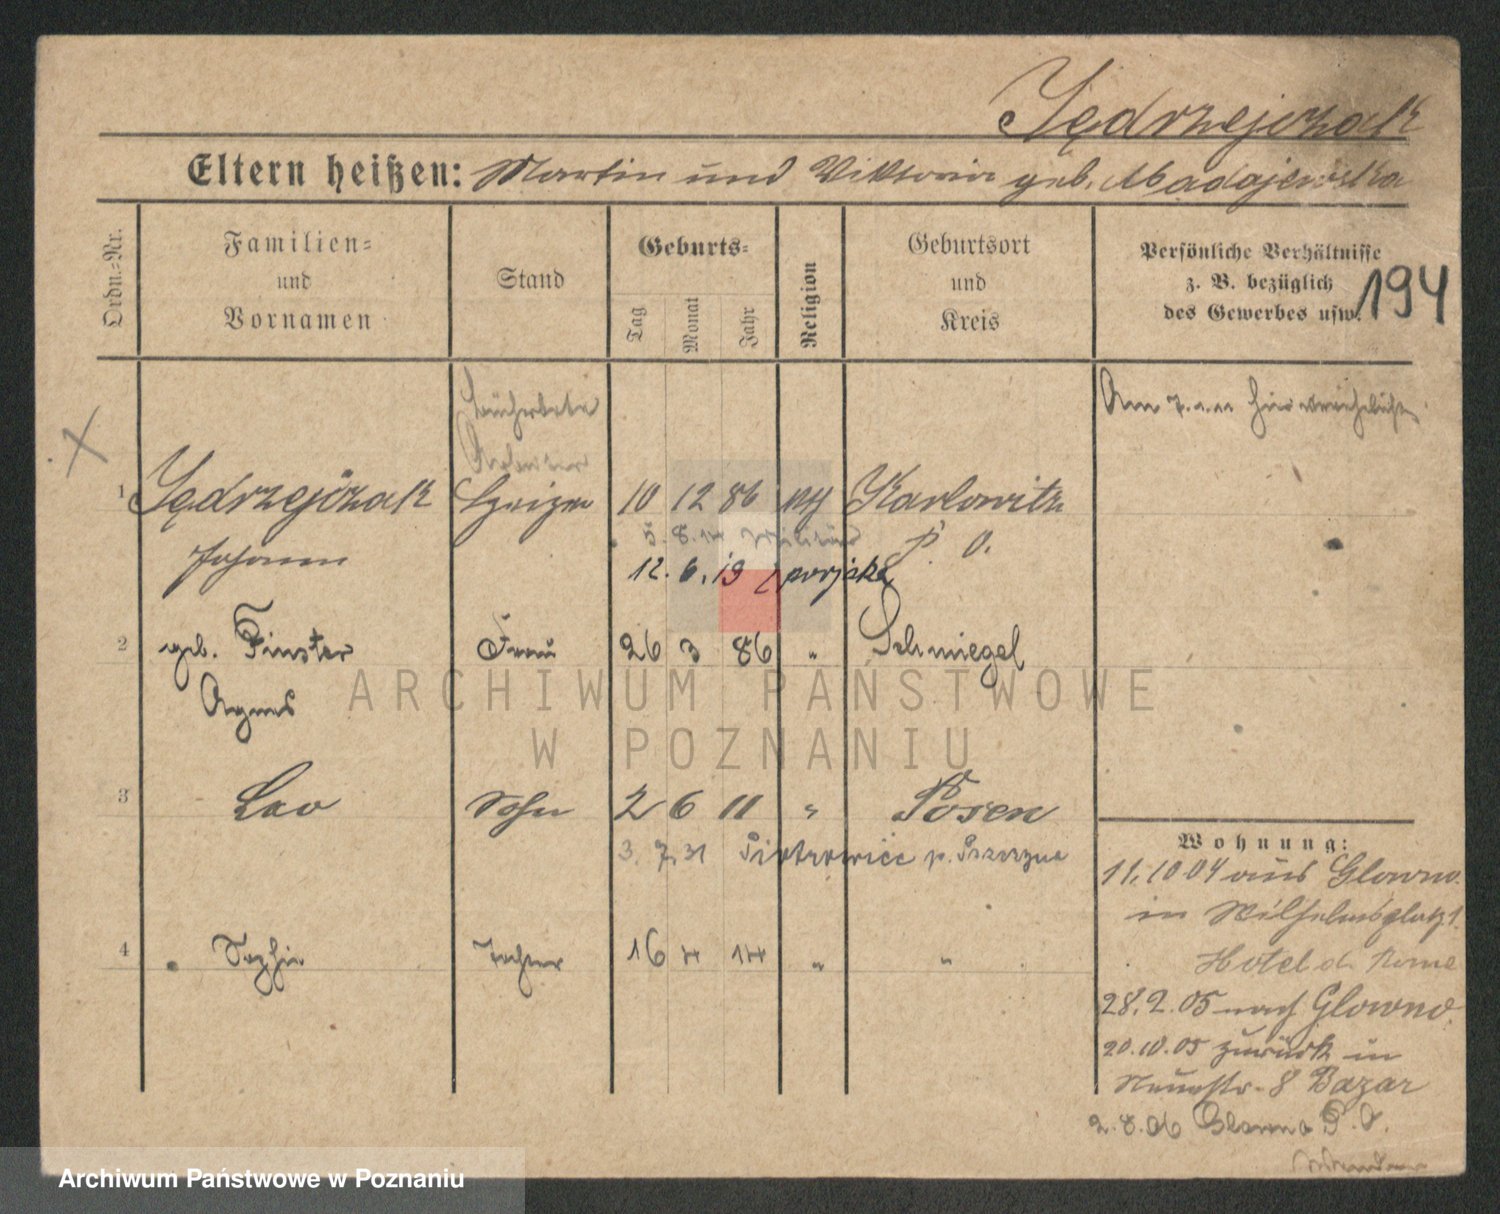 Jędrzejczak
Eltern heißen: Martin und Viktoria geb. Madajewska
Ordn.=Nr.
Familien=
und
Vornamen
Stand
Geburts=
Tag
Monat
Jahr
Religion
Geburtsort
und
Kreis
Persönliche Verhältnisse
z. B. bezüglich
des Gewerbes usw.
194
Am
1 Jędrzejczak Heizer 10 12 86 Karlowitz
Johann
5. 8. 14 Militär
P. O.
12. 6. 19
2 geb. Finster Frau 26 3 86 " Schmiegel
Agnes
3 Leo Sohn 2 6 11 " Posen
3. 7. 31 Piotrowice p.
4 Sophie Tochter 16 4 14 " "
Wohnung:
11. 10 04 aus Glowno
in Wilhelmsplatz 1.
Hotel de Rome
28. 2. 05 nach Glowno.
20. 10. 05 zurück in
Neuestr. 8 Bazar
2. 8. 06 Glowno P. O.
ARCHIWUM PAŃSTWOWE
W POZNANIU
Archiwum Państwowe w Poznaniu